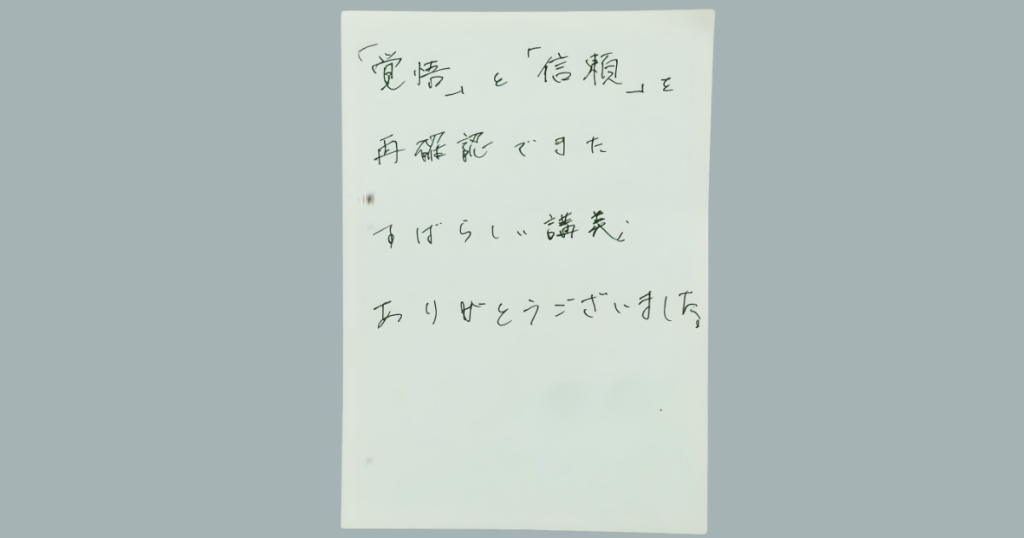 「覚悟」と「信頼」を
再確認できた
すばらしい講義、
ありがとうございました。